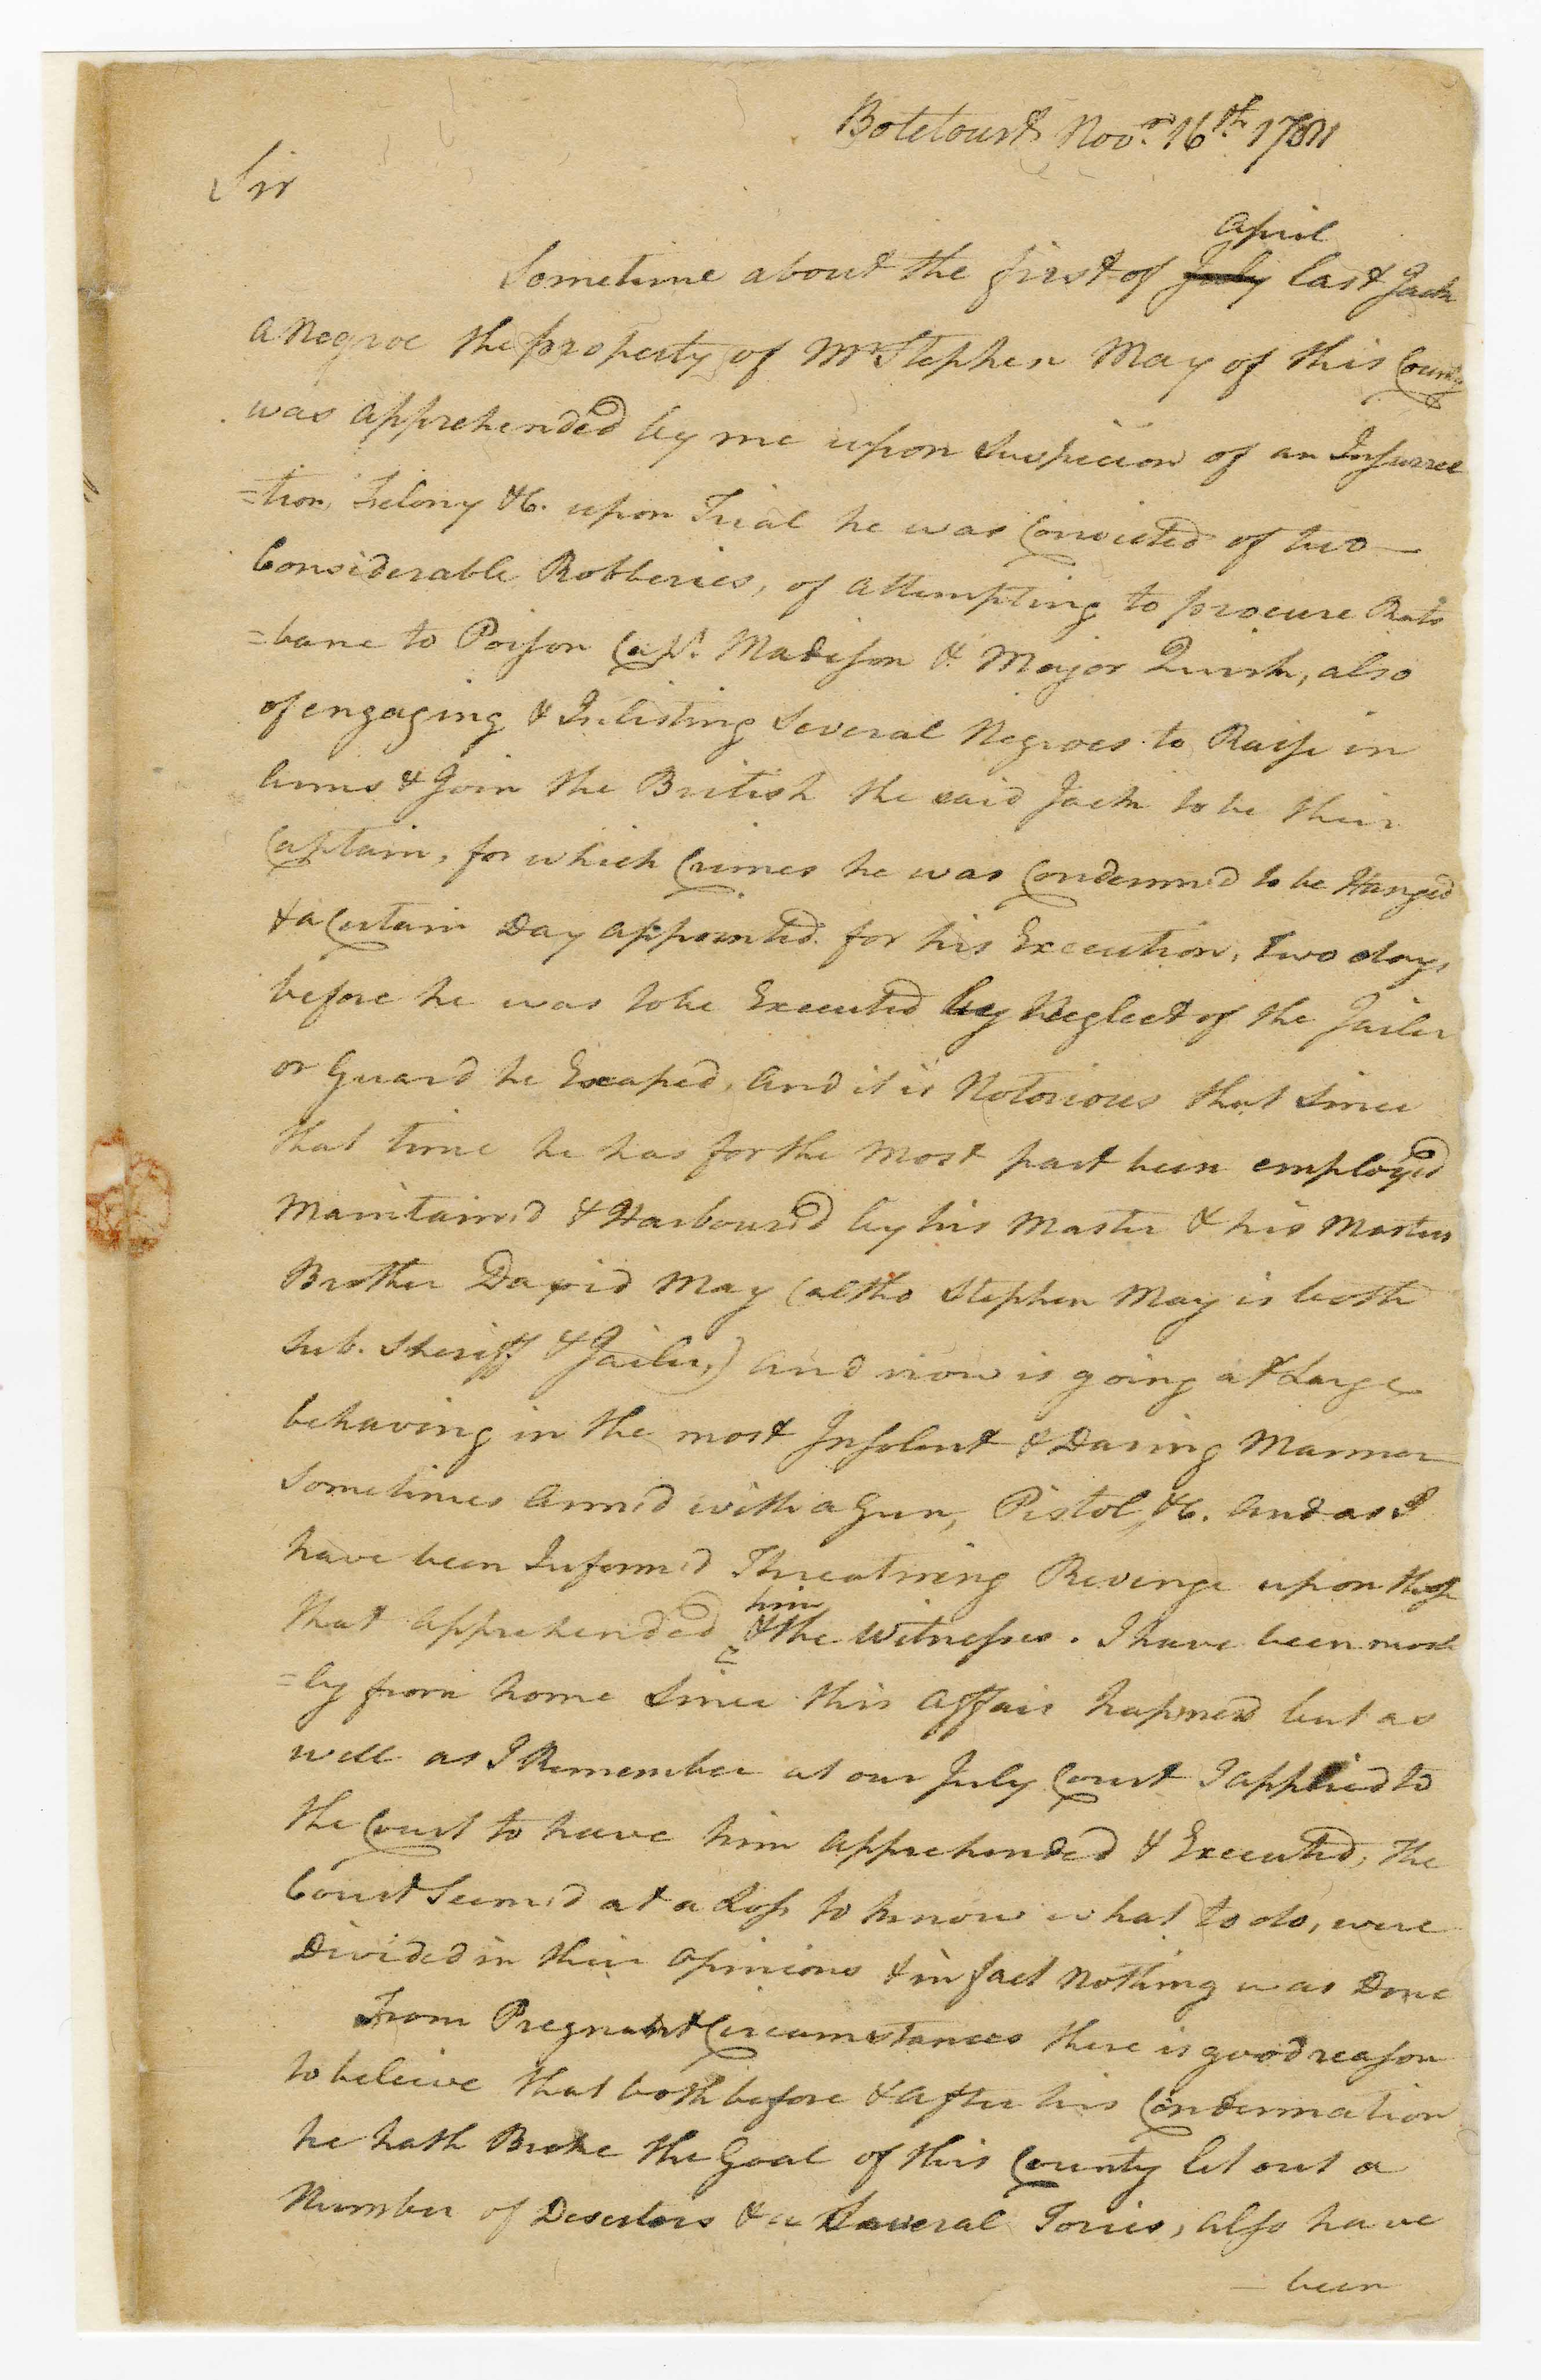 Botetourt Novr. 16th 1781
Sir
april
Sometime about the first of July last Jack
a Negroe the property of Mr Stephen May of this County
was apprehended by me upon Suspicion of an Insurrec
=tion, Felony &c. upon Trial he was Convicted of two
Considerable Robberies, of attempting to procure Rats
=bane to Poison Capt. Madison & Major Quirk, also
of engaging & Inlisting Several Negroes to Raise in
Arms & Join the British the said Jack to be their
Captain, for which Crimes he was Condemn'd to be Hanged
& a Certain Day appointed for his Execution, Two days
before he was to be Executed by Neglect of the Jailer
or Guard he Escaped, And it is Notorious that Since
that time he has for the Most part been employed
Maintain'd & Harbour'd by his Master & his Masters
Brother David May (altho Stephen May is both
Sub. Sheriff & Jailer,) and now is going at Large
behaving in the most Insolent & Daring Manner
Sometimes Arm'd with a Gun, Pistol, &c. and as I
have been Inform'd Threatning Revenge upon those
him
that apprehended & the Witnesses. I have been most
=ly from home Since this affair hapned but as
well as I Remember at our July Court I applied to
the Court to have him apprehended & Executed, the
Court Seem'd at a Loss to know what to do, were
Divided in their opinions & in fact Nothing was Done
From Pregnant Circumstances there is good reason
to beleive that both before & after his Condemnation
he hath Broke the Goal of this County let out a
Number of Deserters & Several Tories, also have
been